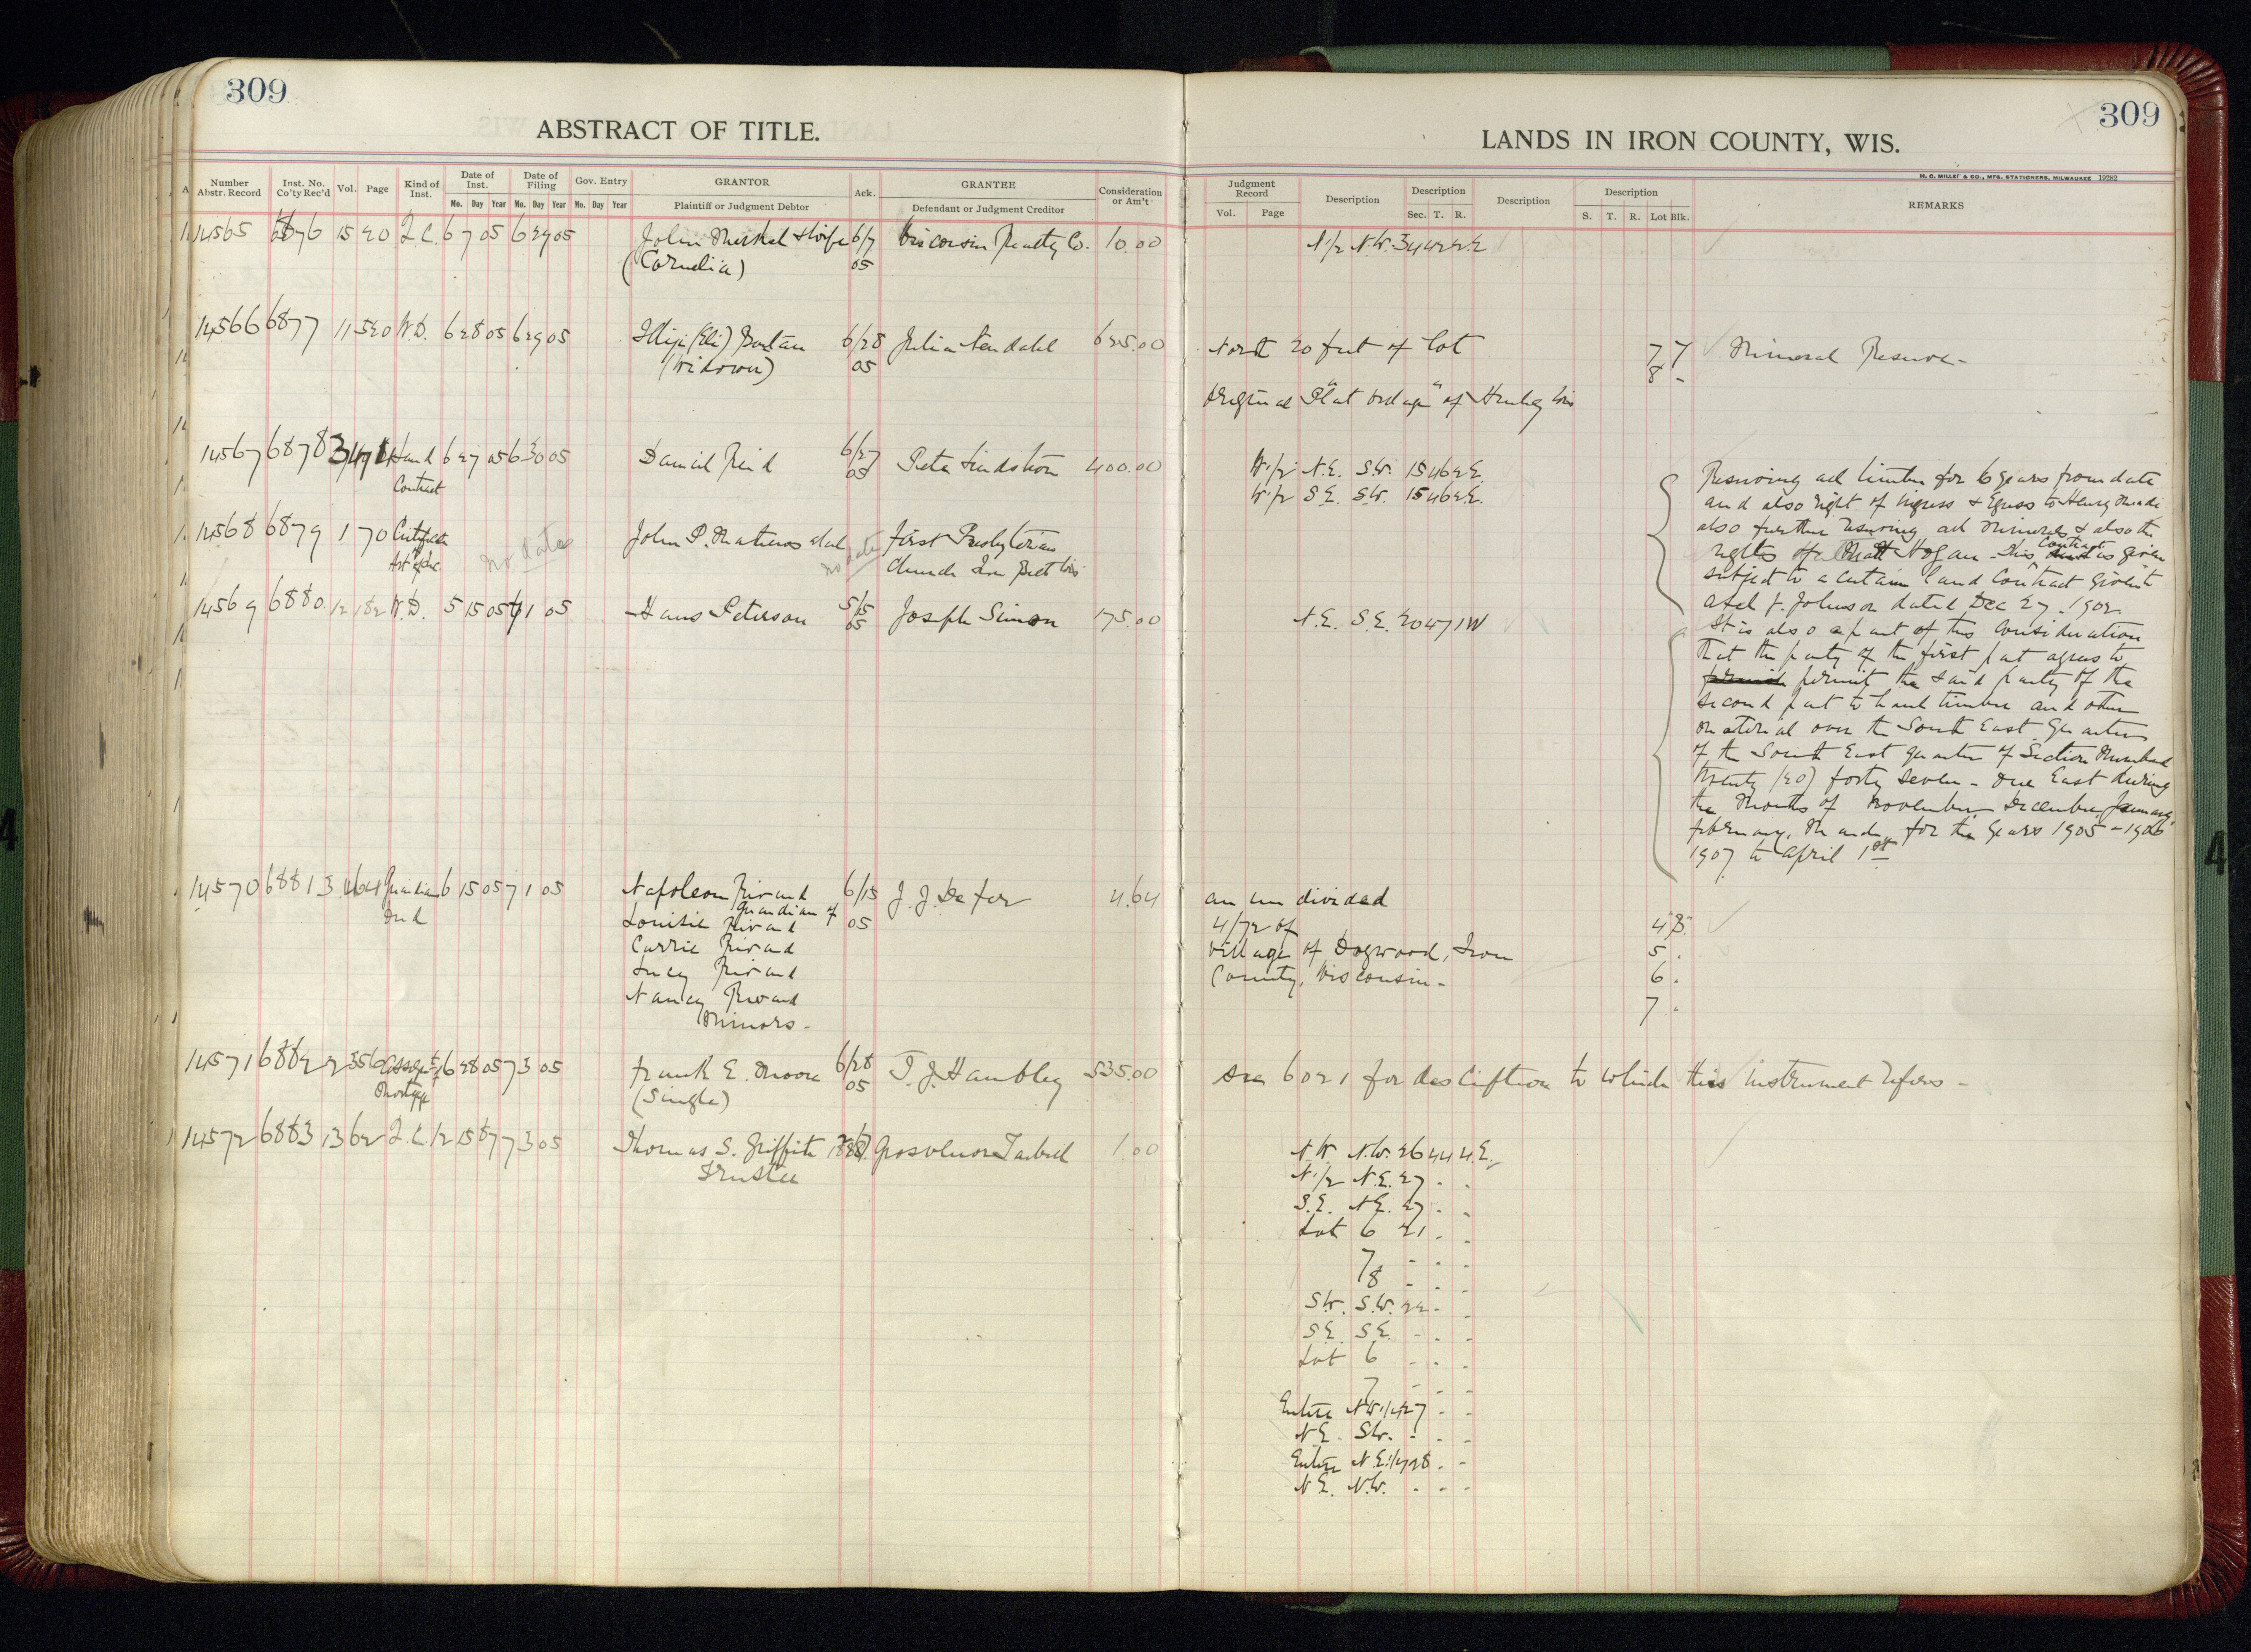 309
ABSTRACT OF TITLE.
309
LANDS IN IRON COUNTY, WIS.
H. C. MILLER CO., MFG. STATIONERS, MILWAUKEE 19282
Number Abstr. Record Inst. No. Co'ty Rec'd Vol. Page Kind of Inst. Date of Inst. Date of Filing Gov. Entry GRANTOR Ack. GRANTEE Consideration or Am't Judgment Record Description Description Description Description REMARKS
Mo. Day Year Mo. Day Year Mo. Day Year Plaintiff or Judgment Debtor Defendant or Judgment Creditor Vol. Page Sec. T. R. S. T. R. Lot Blk.
14565 6876 15 20 Q.C. 6 7 05 6 29 05 John Merkel & Wife 6/7 Wisconsin Realty Co. 10.00 N 1/2 N.W. 34 42 2 E
(Cornelia) 05
14566 6877 11 520 W.D. 6 28 05 6 29 05 (Eli) 6/28 Julia 625.00 North 20 feet of Lot 7 7 Mineral Reserve -
(Widower) 05 8 -
Original Plat "Village" of Hurley Wis
14567 6878 3 471 Land 6 27 05 6 30 05 Daniel Reid 6/27 Peter Lindstrom 400.00 W 1/2 N.E. S.W. 15 46 2 E. Reserving all timber for 6 years from date
Contract 05 W 1/2 S.E. S.W. 15 46 2 E. and also right of ingress & Egress to Henry Meade
also further reserving all minerals & also the
14568 6879 1 70 Certificate No date John P. Matheros et al no date First Presbyterian rights of Matt Hogan - This Contract is given
Art of Inc Church Iron Belt Wis subject to a certain land Contract given to
Axel F. Johnson dated Dec 27 - 1902
14569 6880 12 182 W.D. 5 15 05 7 1 05 Hans Peterson 5/15 05 Joseph Simon 175.00 N.E. S.E. 20 47 1 W It is also a part of this Consideration
That the party of the first part agrees to
permit the said party of the
second part to haul timber and other
material over the South East Quarter
of the South East quarter of Section Numbered
Twenty (20) forty Seven - One East during
the Months of November, December, January,
February, March, for the years 1905 - 1906
1907 to April 1st
14570 6881 3 464 Guardian 6 15 05 7 1 05 Napoleon Rivard 6/15 J. J. Defer 4.64 an undivided
Deed guardian of 05
Louisie Rivard 4/72 of 4 "B."
Carrie Rivard Village of Dogwood, Iron 5 .
Lucy Rivard County, Wisconsin - 6 .
Nancy Rivard 7 "
Minors -
14571 6882 2 356 Assign't 6 28 05 7 3 05 Frank E. Moore 6/28 T. J. Hambley 535.00 See 6021 for description to which this instrument refers -
of Mortgage (Single) 05
14572 6883 13 62 Q.C. 12 15 87 7 3 05 Thomas S. Griffith Grosvenor Tarbell 1.00 N.W. N.W. 26 44 4 E.
Trustee N 1/2 N.E. 27 - -
S.E. N.E. 27 - -
Lot 6 21 - -
7 - - -
8 - - -
S.W. S.W. 22 - -
S.E. S.E. - - -
Lot 6 - - -
7 - - -
Entire N.W. 1/4 27 - -
N.E. S.W. - - -
Entire N.E. 1/4 28 - -
N.E. N.W. - - -